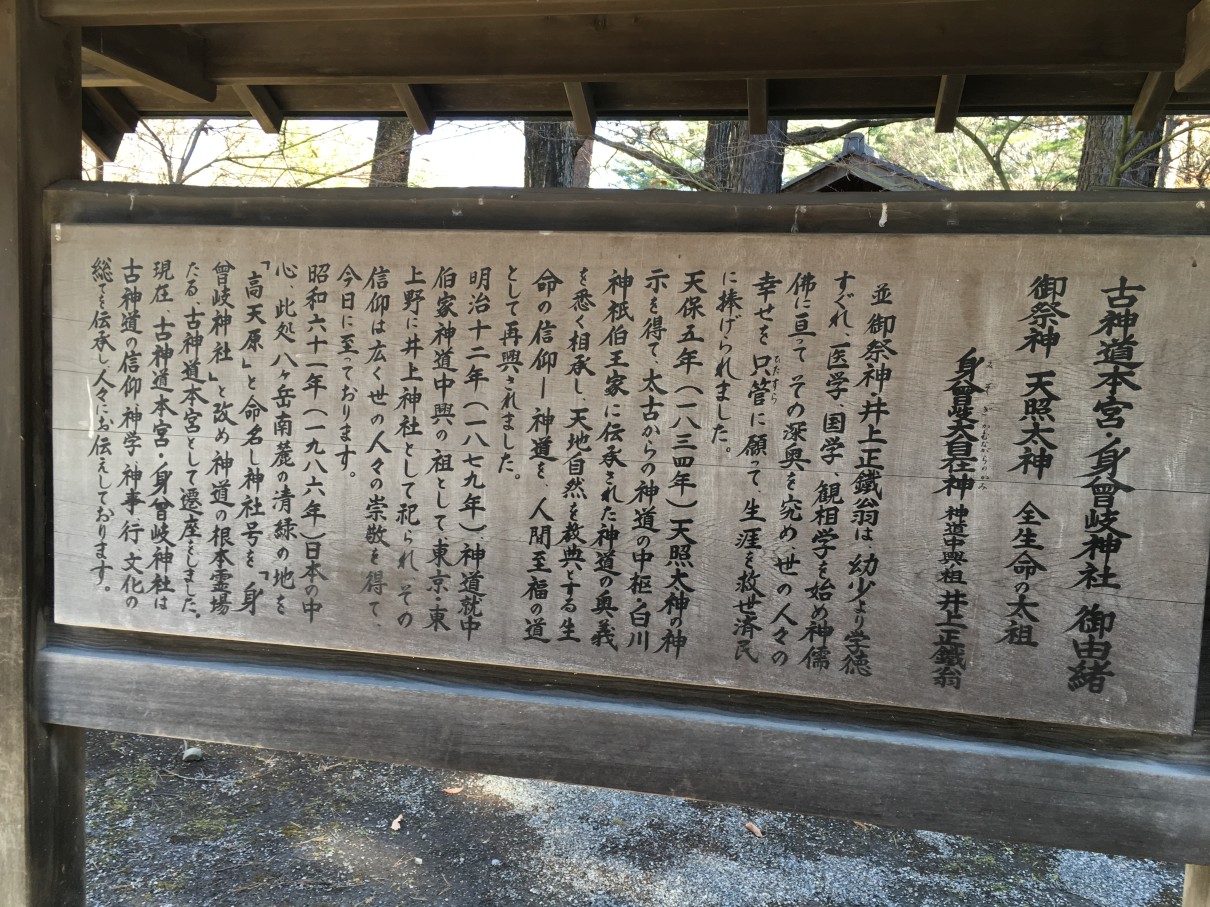 古神道本宮・身曾岐神社 御由緒
御祭神 天照太神 全生命の太祖
身曾岐大自在神 神道中興祖 井上正鐵翁
みそぎかむながらのかみ
並御祭神・井上正鐵翁は、幼少より学徳
すぐれ、医学、国学、観相学を始め神儒
佛に亘って その深奥を究め、世の人々の
幸せを 只管に願って、生涯を救世済民
ひたすら
に捧げられました。
天保五年(一八三四年)天照大神の神
示を得て、太古からの神道の中枢・白川
神祇伯王家に伝承された神道の奥義
を悉く相承し、天地自然を教典とする生
命の信仰ー神道を、人間至福の道
として再興されました。
明治十二年(一八七九年)、神道就中
伯家神道中興の祖として東京・東
上野に井上神社として祀られ、その
信仰は広く世の人々の崇敬を得て、
今日に至っております。
昭和六十一年(一九八六年)日本の中
心、此処八ヶ岳南麓の清緑の地を
「高天原」と命名し神社号を「身
曾岐神社」と改め神道の根本霊場
たる、古神道本宮として遷座をしました。
現在、古神道本宮・身曾岐神社は
古神道の信仰、神学、神事、行、文化の
総てを伝承し人々にお伝えしております。